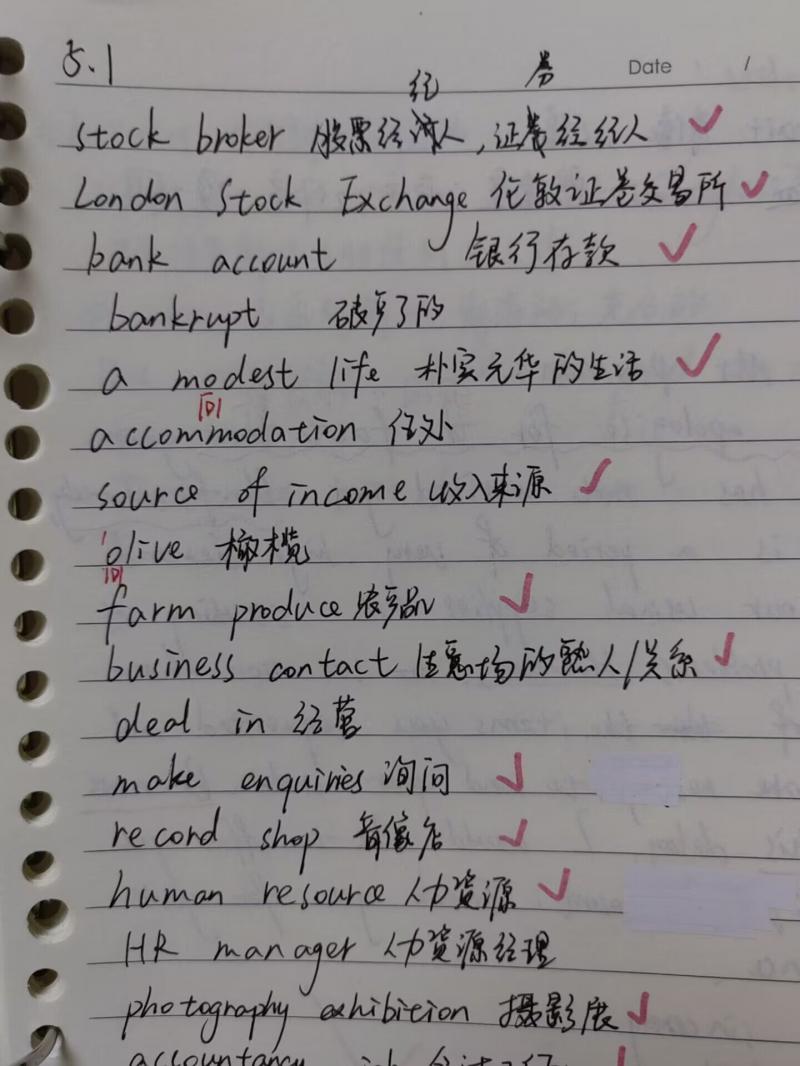 5.1
纪 券 Date /
stock broker 股票经济人,证券经纪人
London Stock Exchange 伦敦证卷交易所
bank account 银行存款
bankrupt 破产了的
a modest life 朴实无华的生活
[ɒ]
accommodation 住处
source of income 收入来源
olive 橄榄
[ɒ]
farm produce 农产品
business contact 生意场的熟人/关系
deal in 经营
make enquiries 询问
record shop 音像店
human resource 人力资源
HR manager 人力资源经理
photography exhibition 摄影展
accountancy